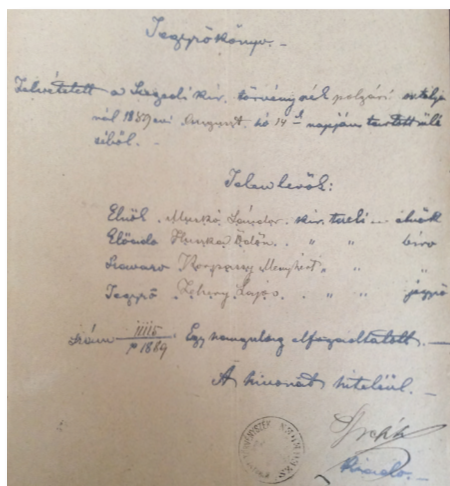 Jegyzőkönyv. –
Felvétetett a Szegedi kir. törvényszék polgári osztálya
nál 1889 évi August. hó 14 é napján tartott ülé
séből. –
Jelenlevők:
Elnök Sándor kir. tszéki – elnök
Előadó Ödön . " " biró
Szavazó Menyhért " " "
Jegyző Lajos . " " jegyző
szám 11115 / P 1889 Egyhangulag elfogadtatott. –
A kivonat hiteléül. –
kiadó. –